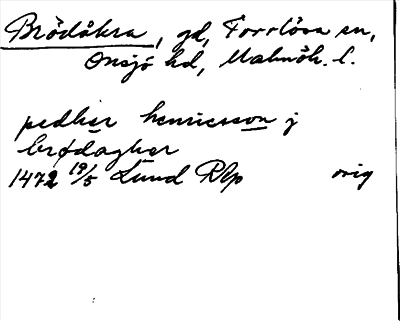 Brödåkra, gd, Torrlösa sn,
Onsjö hd, Malmöh. l.
pedher henricsson j
brødagher
1472 19/5 Lund RAp orig